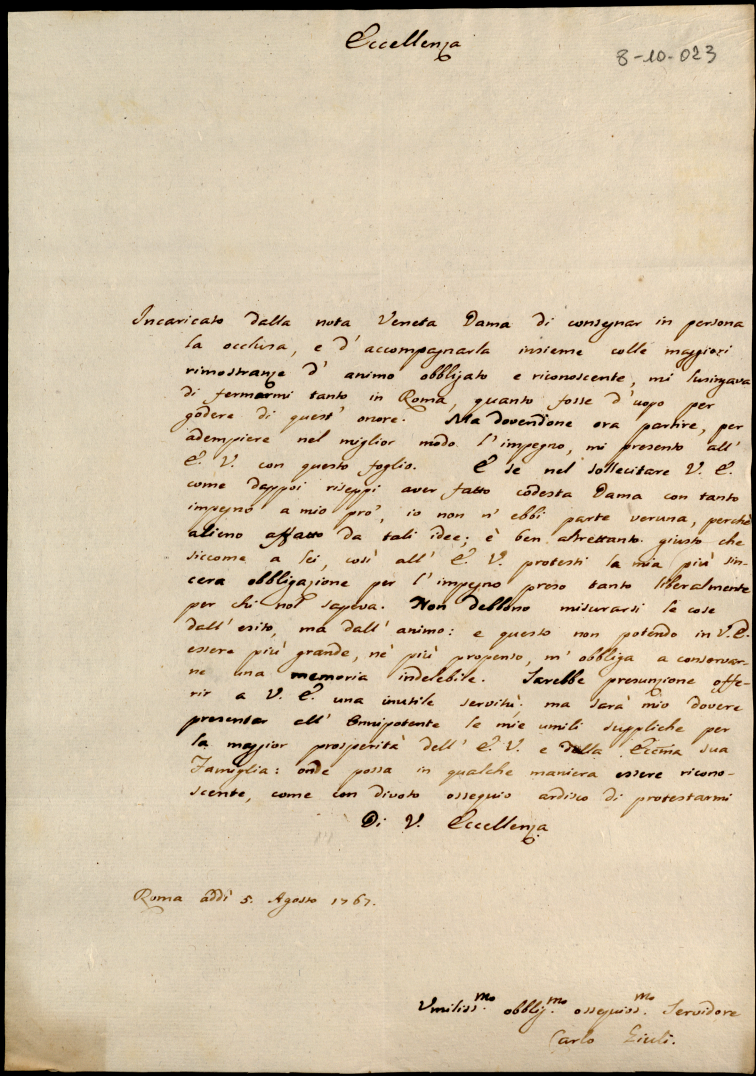 Eccellenza
8-10-023
Incaricato dalla nota Veneta Dama di consegnar in persona
la occlusa, e d' accompagnarla insieme colle maggiori
rimostranze d' animo obbligato e riconoscente, mi lusingava
di fermarmi tanto in Roma, quanto fosse d' uopo per
godere di quest' onore. Ma dovendone ora partire, per
adempiere nel miglior modo l' impegno, mi presento all'
E. V. con questo foglio. E se nel sollecitare V. E.
come dappoi riseppi aver fatto codesta Dama con tanto
impegno a mio prò, io non n' ebbi parte veruna, perchè
alieno affatto da tali idee; è ben altrettanto giusto che
siccome a lei, così all' E. V. protesti la mia più sin-
cera obbligazione per l' impegno preso tanto liberalmente
per chi nol sapeva. Non debbono misurarsi le cose
dall' esito, ma dall' animo: e questo non potendo in V. E.
essere più grande, nè più propenso, m' obbliga a conservar-
ne una memoria indelebile. Sarebbe presunzione offe-
rir a V. E. una inutile servitù: ma sarà mio dovere
presentar all' Omnipotente le mie umili suppliche per
la maggior prosperità dell' E. V. e della Eccma sua
Famiglia: onde possa in qualche maniera essere ricono-
scente, come con divoto ossequio ardisco di protestarmi
Di V. Eccellenza
Roma addì 5. Agosto 1767.
Umiliss.mo obblig.mo ossequiss.mo Servidore
Carlo Giuli.